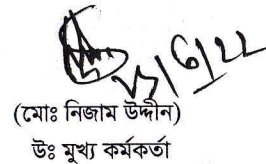 (মোঃ নিজাম উদ্দীন)
উঃ মুখ্য কর্মকর্তা